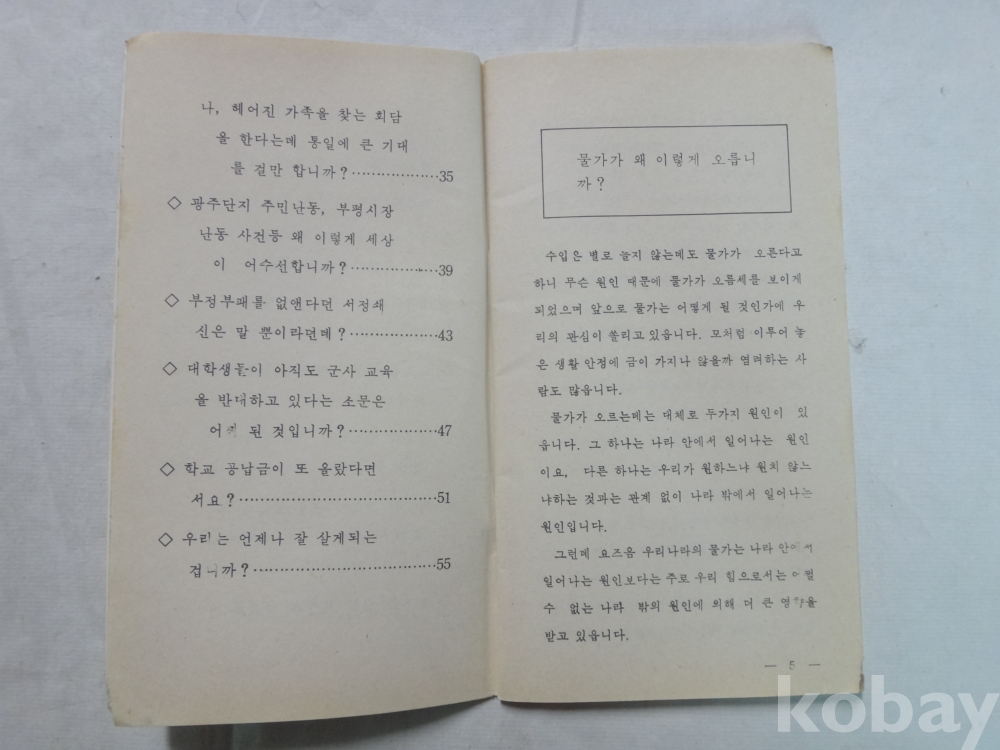 나, 헤어진 가족을 찾는 회담
을 한다는데 통일에 큰 기대
를 걸만 합니까?………………35
◇ 광주단지 주민난동, 부평시장
난동 사건등 왜 이렇게 세상
이 어수선합니까?………………39
◇ 부정부패를 없앤다던 서정쇄
신은 말 뿐이라던데?………………43
◇ 대학생들이 아직도 군사 교육
을 반대하고 있다는 소문은
어찌 된 것입니까?………………47
◇ 학교 공납금이 또 올랐다면
서요?………………………………51
◇ 우리는 언제나 잘 살게되는
겁니까?………………………………55
물가가 왜 이렇게 오릅니
까?
수입은 별로 늘지 않는데도 물가가 오른다고
하니 무슨 원인 때문에 물가가 오름세를 보이게
되었으며 앞으로 물가는 어떻게 될 것인가에 우
리의 관심이 쏠리고 있읍니다. 모처럼 이루어 놓
은 생활 안정에 금이 가지나 않을까 염려하는 사
람도 많읍니다.
물가가 오르는데는 대체로 두가지 원인이 있
읍니다. 그 하나는 나라 안에서 일어나는 원인
이요, 다른 하나는 우리가 원하느냐 원치 않느
냐하는 것과는 관계 없이 나라 밖에서 일어나는
원인입니다.
그런데 요즈음 우리나라의 물가는 나라 안에서
일어나는 원인보다는 주로 우리 힘으로서는 어쩔
수 없는 나라 밖의 원인에 의해 더 큰 영향을
받고 있읍니다.
— 5 —
kobay